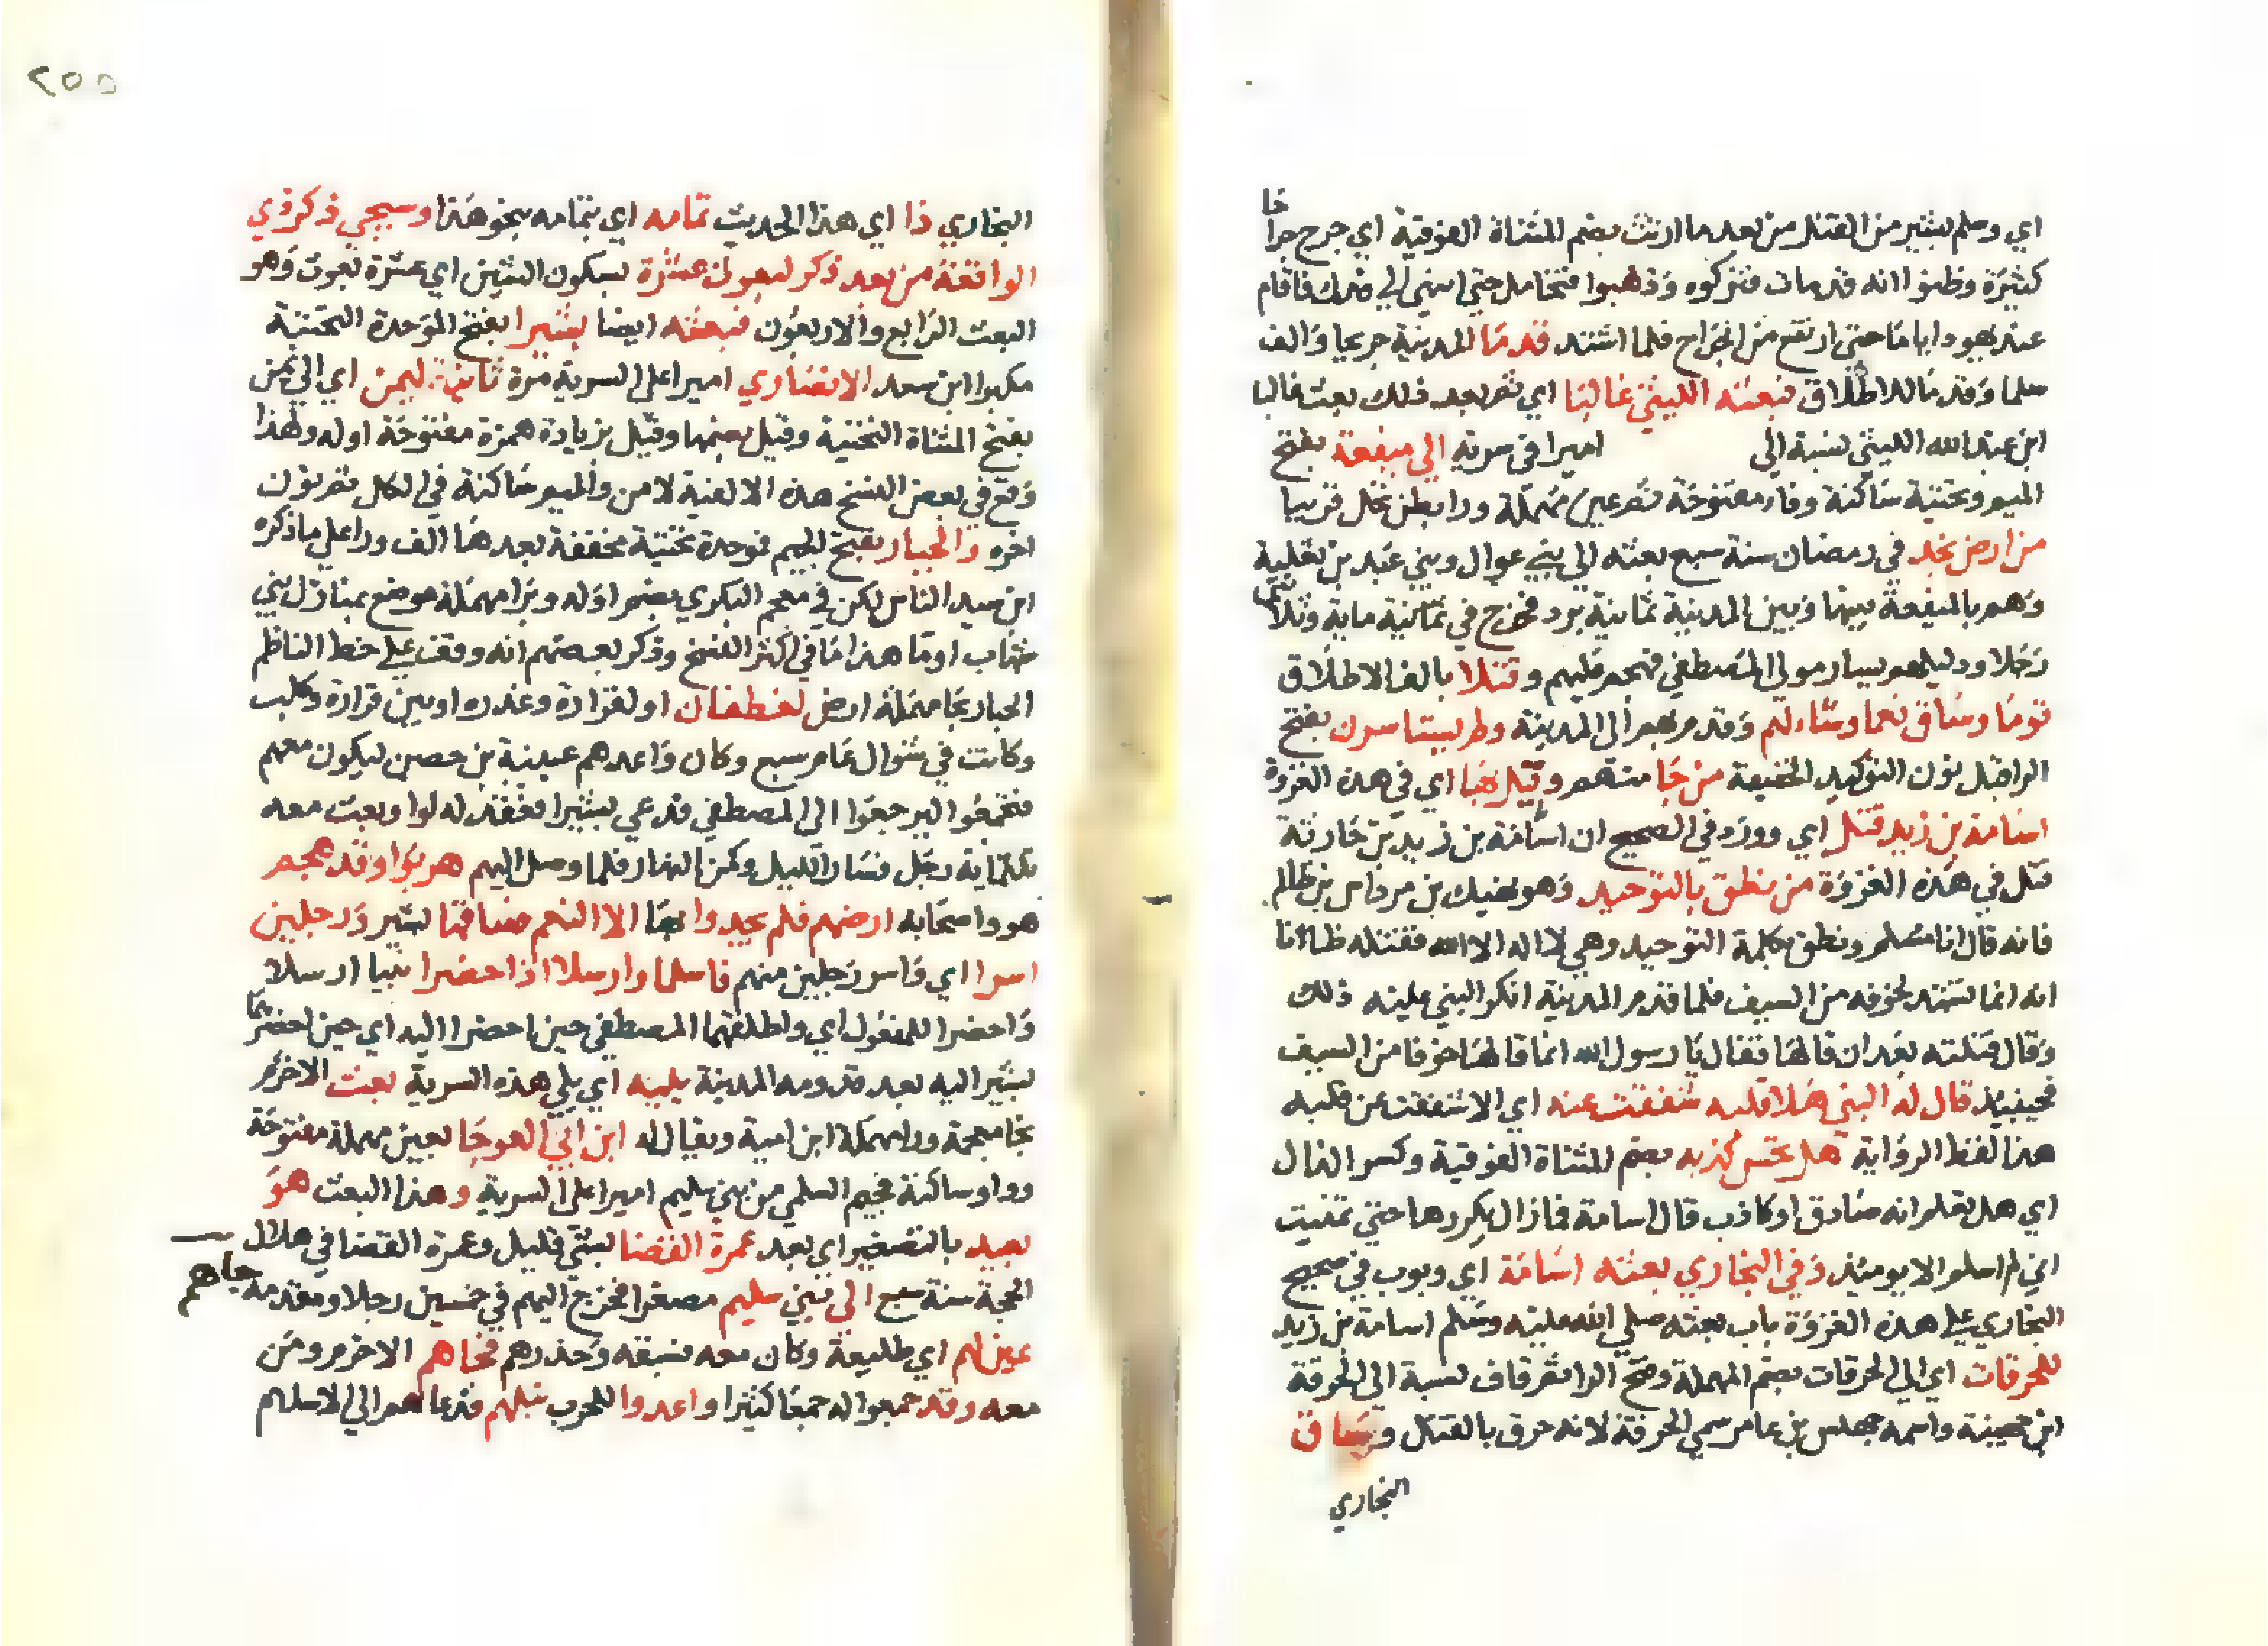 اي وسلم بشير من القتل من بعد ما ارتث بضم المثناة الفوقية اي جرح جراحا
كثيرة وظنوا انه قد مات فتركوه وذهبوا فتحامل حتي انتهي الي فدك فاقام
عند يهود اياما حتي ارتفع من الجراح فلما اشتد قدما المدينة جريحا والف
سلما وقدما للاطلاق فبعثه الليثي غالبا اي ثم بعد ذلك بعث غالبا
ابن عبد الله الليثي نسبة الي اميرا في سرية الي ميفعة بفتح
الميم وتحتية ساكنة وفاء مفتوحة ثم عين مهملة ورا بطن نخل قريبا
من ارض نجد في رمضان سنة سبع بعثه الي بني عوال وبني عبد بن ثعلبة
وهم بالميفعة بينها وبين المدينة ثمانية برد فخرج في ثمانية ماية وثلاثين
رجلا ودليلهم يسار مولي المصطفي فهجم عليهم وقتلا بالف الاطلاق
قوما وساق نعما وشاء لهم وقدم بهم الي المدينة ولم يستاسرن بفتح
الرا قبل نون التوكيد الخفيفة من جا منهم وقيل بها اي في هذه الغزوة
اسامة بن زيد قتل اي وورد في الصحيح ان اسامة بن زيد بن حارثة
قتل في هذه الغزوة من نطق بالتوحيد وهو نهيك بن مرداس بن ظالم
فانه قال انا مسلم ونطق بكلمة التوحيد وهي لا اله الا الله فقتله ظانا
انه انما تشهد لخوفه من السيف فلما قدم المدينة انكر النبي عليه ذلك
وقال قتلته بعد ان قالها فقال يا رسول الله انما قالها خوفا من السيف
فحينيذ قال له النبي هلا قلبه شققت عنه اي الا شققت عن قلبه
هذا لفظ الرواية هل تحس كذبه بضم المثناة الفوقية وكسر الذال
اي هل تعلم انه صادق او كاذب قال اسامة فما زال يكررها حتي تمنيت
اني لم اسلم الا يوميذ وفي البخاري بعثه اسامة اي وبوب في صحيح
البخاري علي هذه الغزوة باب بعثه صلي الله عليه وسلم اسامة بن زيد
للحرقات اي الي الحرقات بضم المهملة وفتح الرا ثم قاف نسبة الي الحرقة
ابن جهينة واسمه جهيس بن عامر سمي الحرقة لانه حرق بالقتل وساق
البخاري
٢٥٥
البخاري ذا اي هذا الحديث تمامه اي بتمامه بنحو هذا وسيجي ذكر ذي
الواقعة من بعد ذكر لبعوث عشرة بسكون الشين اي عشرة بعوث وهو
البعث الرابع والاربعون فبعثه ايضا بشيرا بفتح الموحدة التحتية
مكبوا ابن سعد الانصاري اميرا علي السرية مرة ثانية ليمن اي الي يمن
بفتح المثناة التحتية وقيل بضمها وقيل بزيادة همزة مفتوحة اوله ولهذا
وقع في بعض النسخ هذه الالفية لامن والميم ساكنة في الكل ثم نون
اخره والجبار بفتح الجيم فموحدة تحتية مخففة بعدها الف ورا علي ما ذكره
ابن سيد الناس لكن في معجم البكري بضم اوله وبزا مهملة موضع بمنازل بني
شهاب اوما هذا ما في اكثر النسخ وذكر بعضهم انه وقف علي خط الناظم
الجبار بحا مهملة ارض لغطفان او لفزارة وعذره او بين فزارة وكلب
وكانت في شوال عام سبع وكان واعدهم عيينة بن حصين ليكون معهم
فتجمعوا ليرجعوا الي المصطفي فدعي بشيرا فعقد له لوا وبعث معه
ثلثماية رجل فسار الليل وكمن النهار فلما وصل اليهم هربوا وقد هجم
هو واصحابه ارضهم فلم يجدوا بها الا النعم فساقها بشير ورجلين
اسرا اي واسر رجلين منهم فاسلما وارسلا اذا احضرا نبيا ارسلا
واحضرا للمفعول اي واطلقهما المصطفي حين احضرا اليه اي حين احضرهما
بشير اليه بعد قدومه المدينة يليه اي يلي هذه السرية بعث الاخرم
بخا معجمة ورا مهملة ابن امية ويقال له ابن ابي العوجا بعين مهملة مفتوحة
وواو ساكنة فجيم السلمي من بني سليم اميرا علي السرية وهذا البعث هو
بعيد بالتصغير اي بعد عمرة القضا بشي قليل وعمرة القضا في هلال
الحجة سنة سبع الي بني سليم مصغرا فخرج اليهم في خمسين رجلا ومقدمه جاهم
عين لهم اي طليعة وكان معه فسبقه وحذرهم فجاهم الاخرم ومن
معه وقد جمعوا له جمعا كثيرا واعدوا للحرب نبلهم فدعاهم الي الاسلام